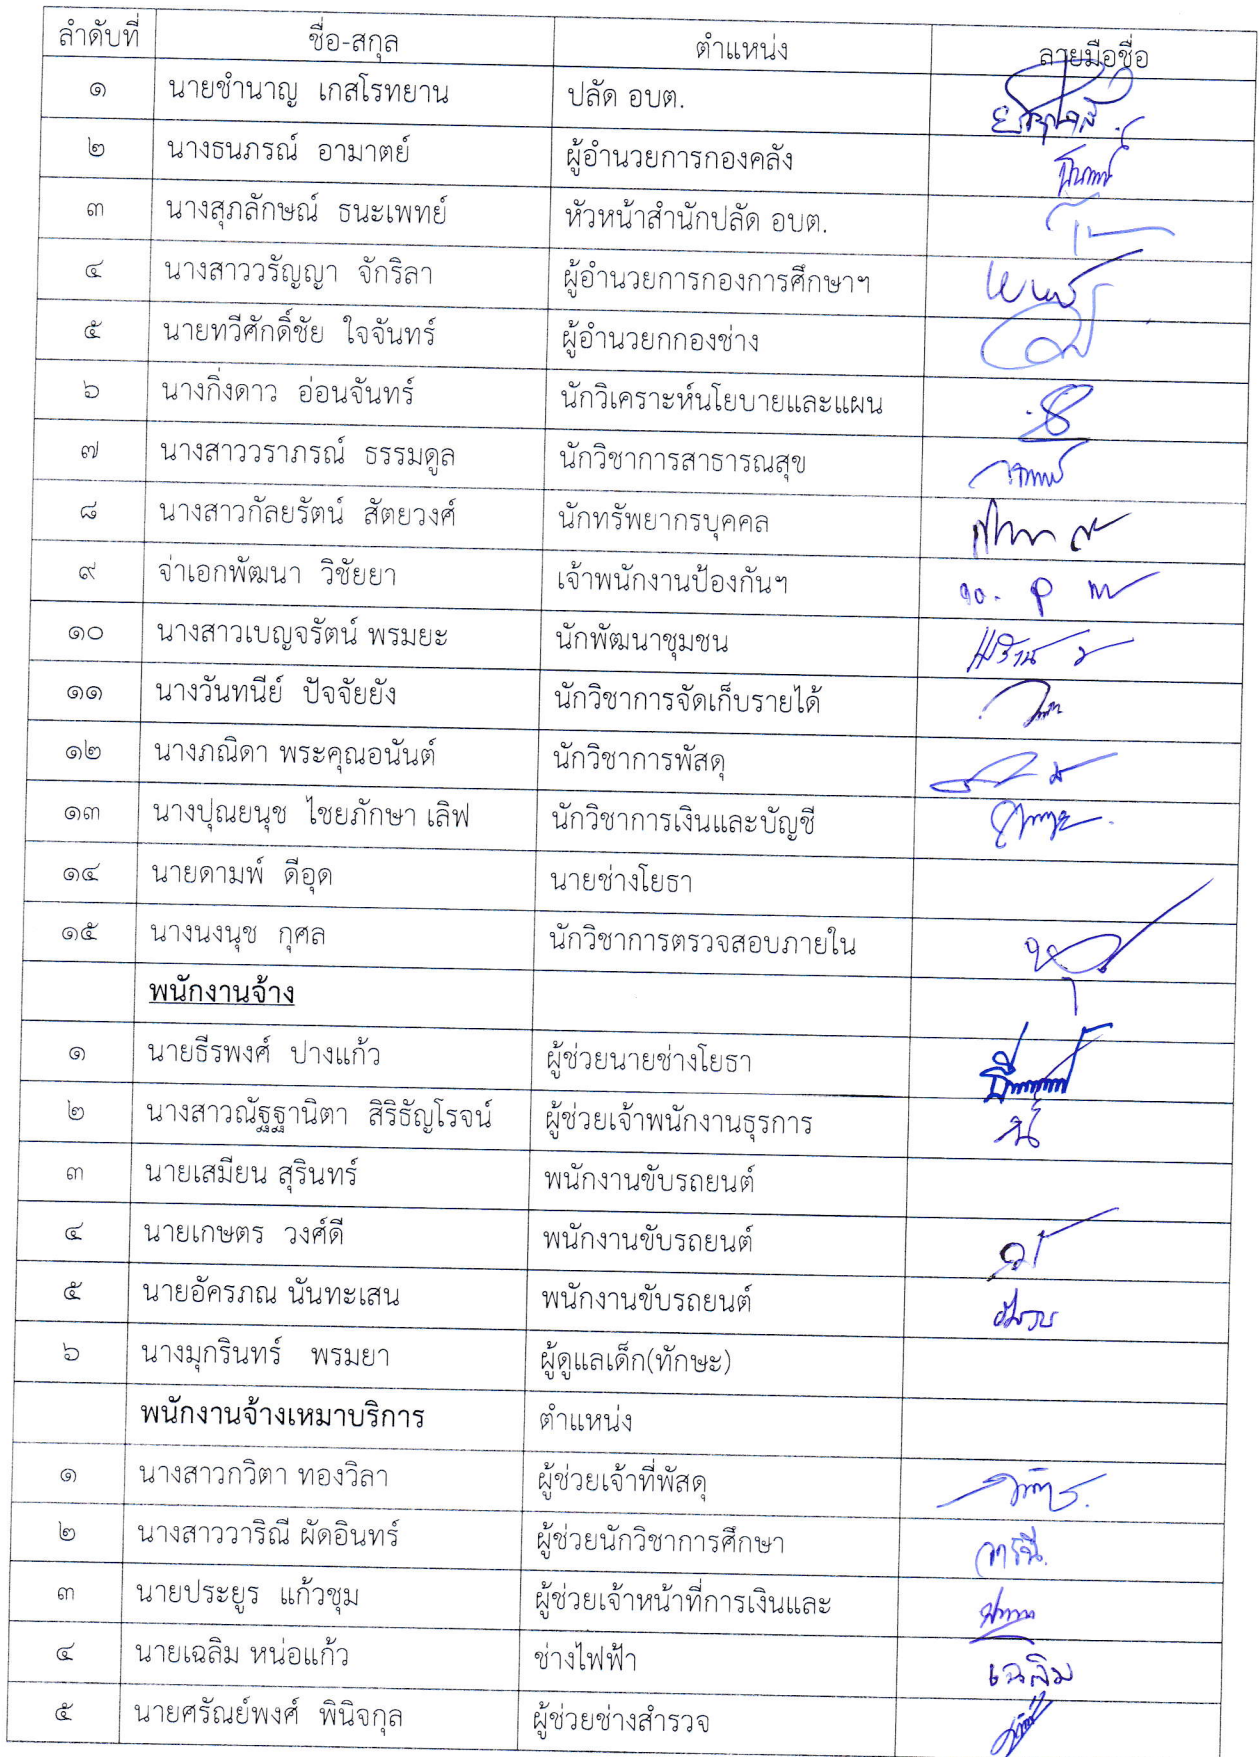 ลำดับที่ ชื่อ-สกุล ตำแหน่ง ลายมือชื่อ
๑ นายชำนาญ เกสโรทยาน ปลัด อบต.
๒ นางธนภรณ์ อามาตย์ ผู้อำนวยการกองคลัง
๓ นางสุภลักษณ์ ธนะเพทย์ หัวหน้าสำนักปลัด อบต.
๔ นางสาววรัญญา จักริลา ผู้อำนวยการกองการศึกษาฯ
๕ นายทวีศักดิ์ชัย ใจจันทร์ ผู้อำนวยกกองช่าง
๖ นางกิ่งดาว อ่อนจันทร์ นักวิเคราะห์นโยบายและแผน
๗ นางสาววราภรณ์ ธรรมดูล นักวิชาการสาธารณสุข
๘ นางสาวกัลยรัตน์ สัตยวงศ์ นักทรัพยากรบุคคล
๙ จ่าเอกพัฒนา วิชัยยา เจ้าพนักงานป้องกันฯ
๑๐ นางสาวเบญจรัตน์ พรมยะ นักพัฒนาชุมชน
๑๑ นางวันทนีย์ ปัจจัยยัง นักวิชาการจัดเก็บรายได้
๑๒ นางภณิดา พระคุณอนันต์ นักวิชาการพัสดุ
๑๓ นางปุณยนุช ไชยภักษา เลิฟ นักวิชาการเงินและบัญชี
๑๔ นายดามพ์ ดีอุด นายช่างโยธา
๑๕ นางนงนุช กุศล นักวิชาการตรวจสอบภายใน
พนักงานจ้าง
๑ นายธีรพงศ์ ปางแก้ว ผู้ช่วยนายช่างโยธา
๒ นางสาวณัฐฐานิตา สิริธัญโรจน์ ผู้ช่วยเจ้าพนักงานธุรการ
๓ นายเสมียน สุรินทร์ พนักงานขับรถยนต์
๔ นายเกษตร วงศ์ดี พนักงานขับรถยนต์
๕ นายอัครภณ นันทะเสน พนักงานขับรถยนต์
๖ นางมุกรินทร์ พรมยา ผู้ดูแลเด็ก(ทักษะ)
พนักงานจ้างเหมาบริการ ตำแหน่ง
๑ นางสาวกวิตา ทองวิลา ผู้ช่วยเจ้าที่พัสดุ
๒ นางสาววาริณี ผัดอินทร์ ผู้ช่วยนักวิชาการศึกษา
๓ นายประยูร แก้วชุม ผู้ช่วยเจ้าหน้าที่การเงินและ
๔ นายเฉลิม หน่อแก้ว ช่างไฟฟ้า เฉลิม
๕ นายศรัณย์พงศ์ พินิจกุล ผู้ช่วยช่างสำรวจ